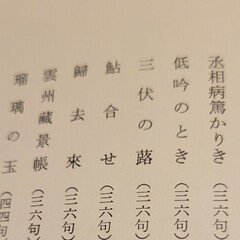 丞相病篤かりき（三六句）
低吟のとき（三六句）
三伏の蕗（三六句）
鮎合せ（三六句）
歸去來（三六句）
雲州藏景帳（三六句）
瑠璃の玉（四四句）